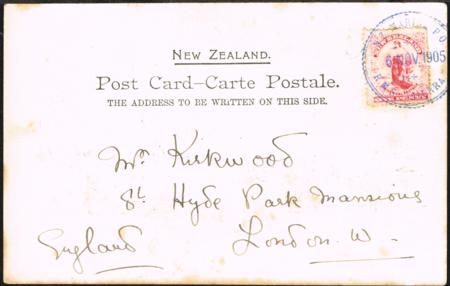 NEW ZEALAND.
Post Card–Carte Postale.
THE ADDRESS TO BE WRITTEN ON THIS SIDE.
NEW ZEALAND
ONE PENNY
6 NOV 1905
Mr Kirkwood
Hyde Park Mansions
London. W.
England